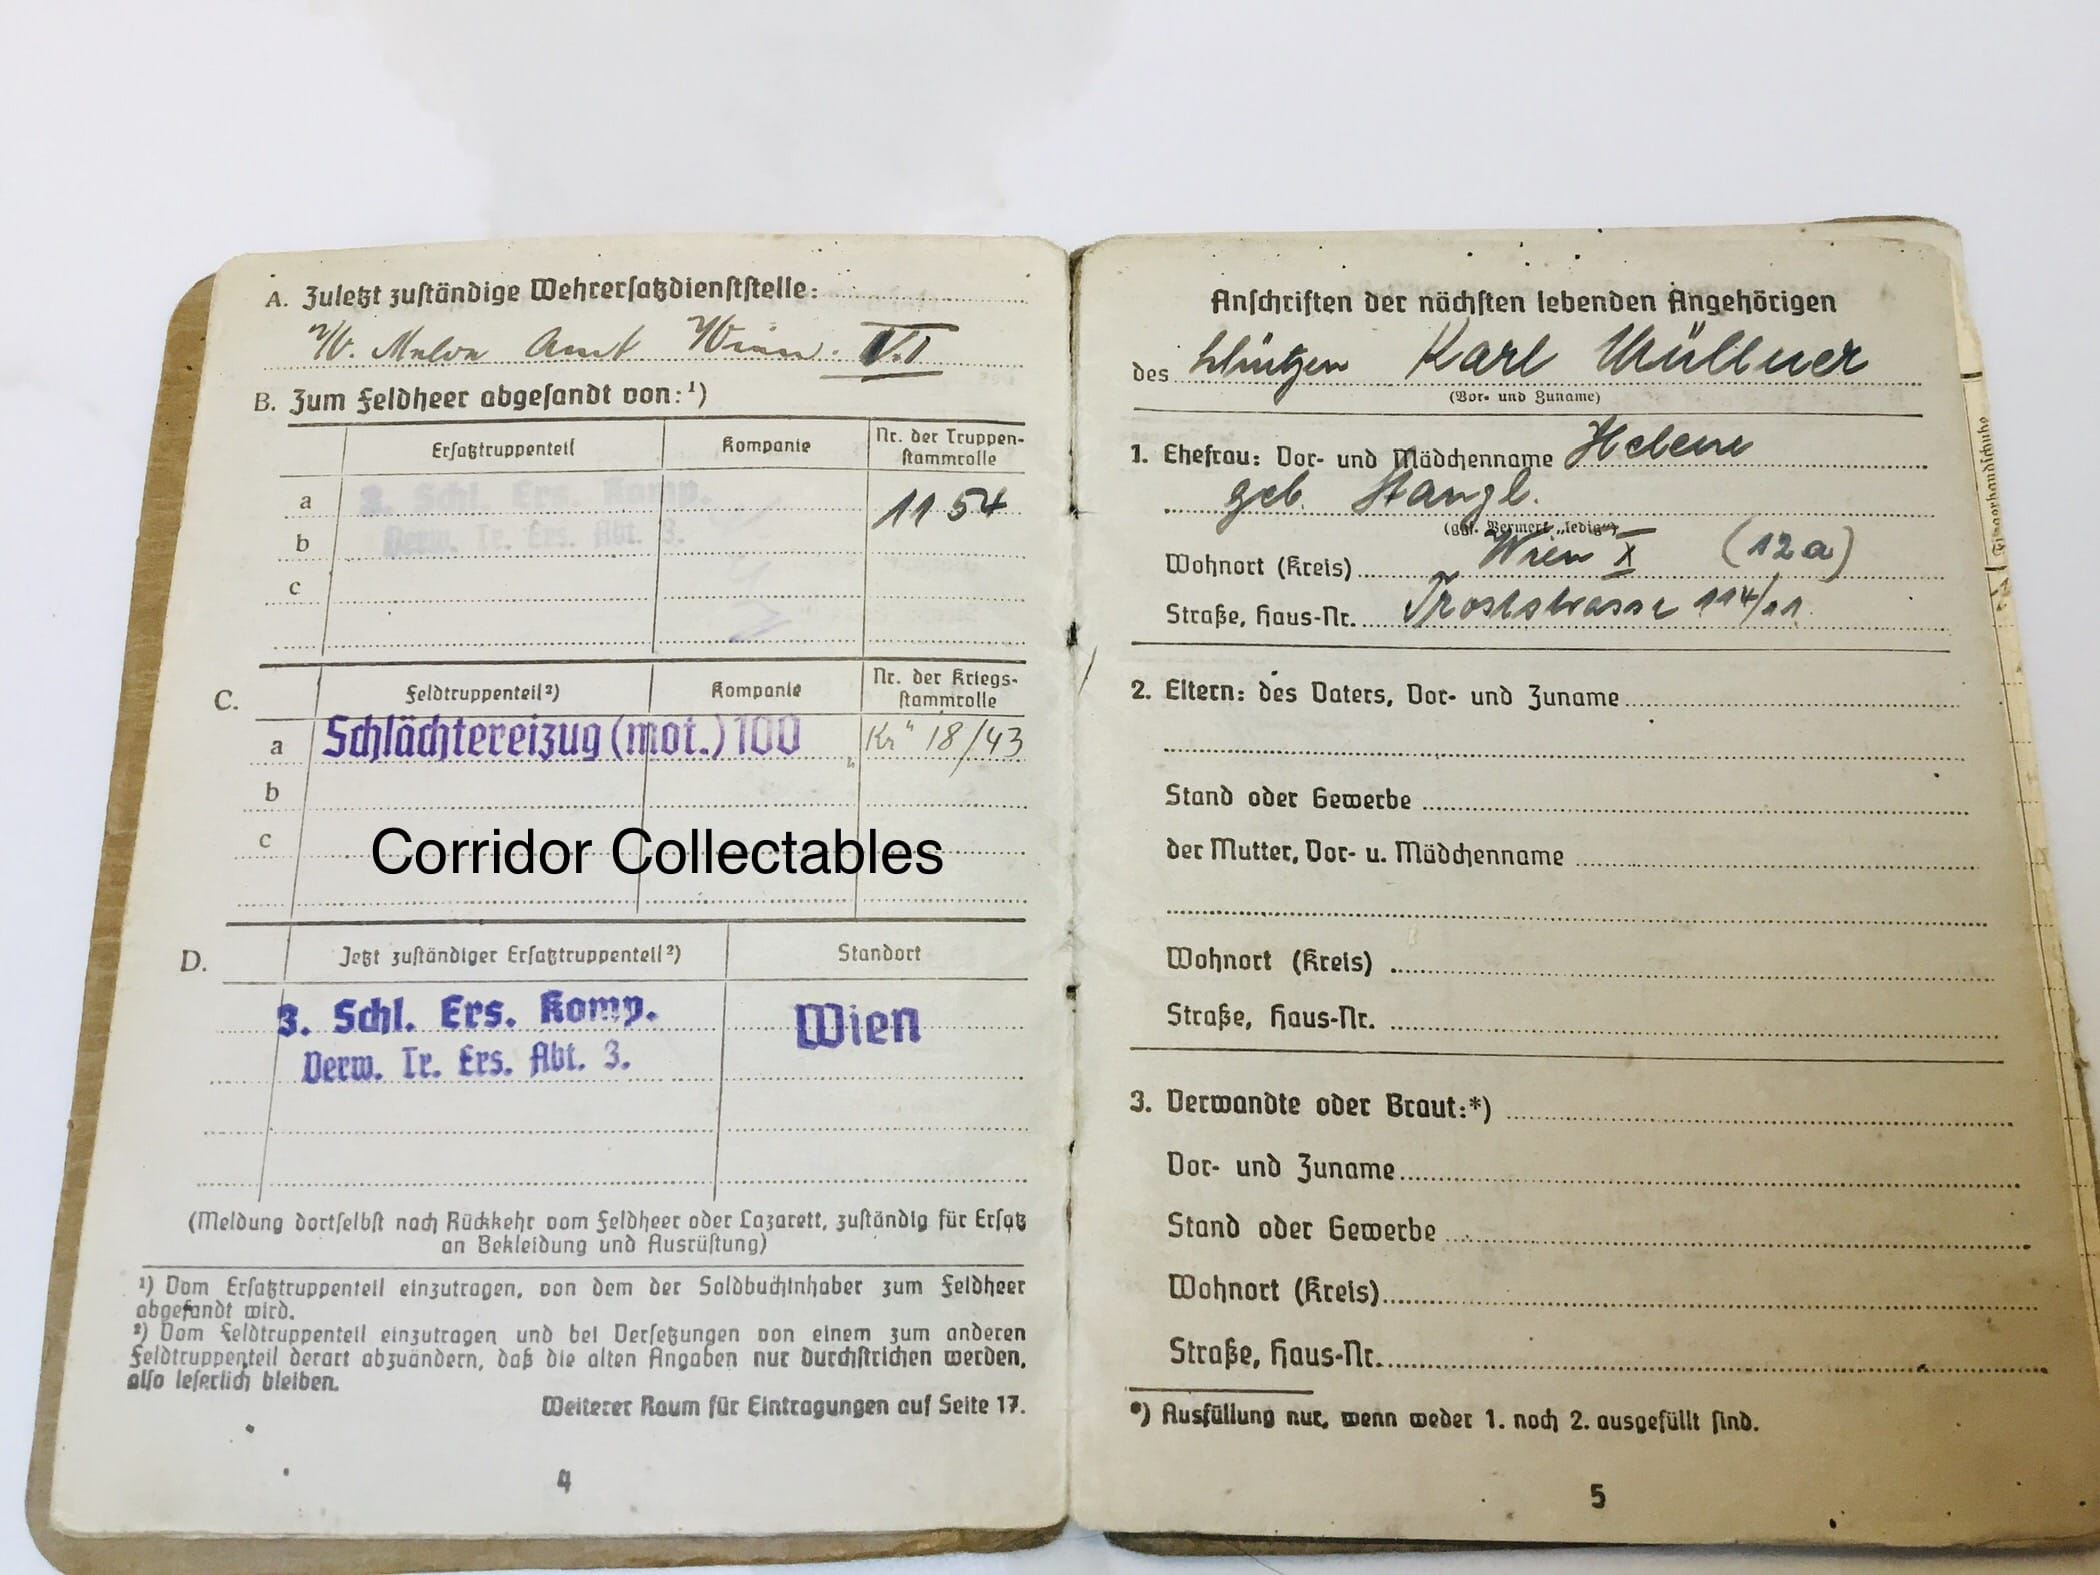 A. Zuletzt zuständige Wehrersatzdienststelle:
W. Melde Amt Wien.
B. Zum Feldheer abgesandt von:¹)
Ersatztruppenteil Kompanie Nr. der Truppen-
stammrolle
a 3. Schl. Ers. Komp. 1154
b Verw. Tr. Ers. Abt. 3.
c
C. Feldtruppenteil²) Kompanie Nr. der Kriegs-
stammrolle
a Schlächtereizug (mot.) 100 Kr 18/43
b
c
Corridor Collectables
D. Jetzt zuständiger Ersatztruppenteil²) Standort
3. Schl. Ers. Komp. Wien
Verw. Tr. Ers. Abt. 3.
(Meldung dortselbst nach Rückkehr vom Feldheer oder Lazarett, zuständig für Ersatz
an Bekleidung und Ausrüstung)
¹) Vom Ersatztruppenteil einzutragen, von dem der Soldbuchinhaber zum Feldheer
abgesandt wird.
²) Vom Feldtruppenteil einzutragen und bei Versetzungen von einem zum anderen
Feldtruppenteil derart abzuändern, daß die alten Angaben nur durchstrichen werden,
also leserlich bleiben.
Weiterer Raum für Eintragungen auf Seite 17.
4
Anschriften der nächsten lebenden Angehörigen
des Schützen Karl Müllner
(Vor- und Zuname)
1. Ehefrau: Vor- und Mädchenname Helene
geb. Stangl.
(ggf. Vermerk „ledig“)
Wohnort (Kreis) Wien X (12a)
Straße, Haus-Nr. Troststrasse 114/11.
2. Eltern: des Vaters, Vor- und Zuname
Stand oder Gewerbe
der Mutter, Vor- u. Mädchenname
Wohnort (Kreis)
Straße, Haus-Nr.
3. Verwandte oder Braut:*)
Vor- und Zuname
Stand oder Gewerbe
Wohnort (Kreis)
Straße, Haus-Nr.
*) Ausfüllung nur, wenn weder 1. noch 2. ausgefüllt sind.
5
Fingerhandschuhe